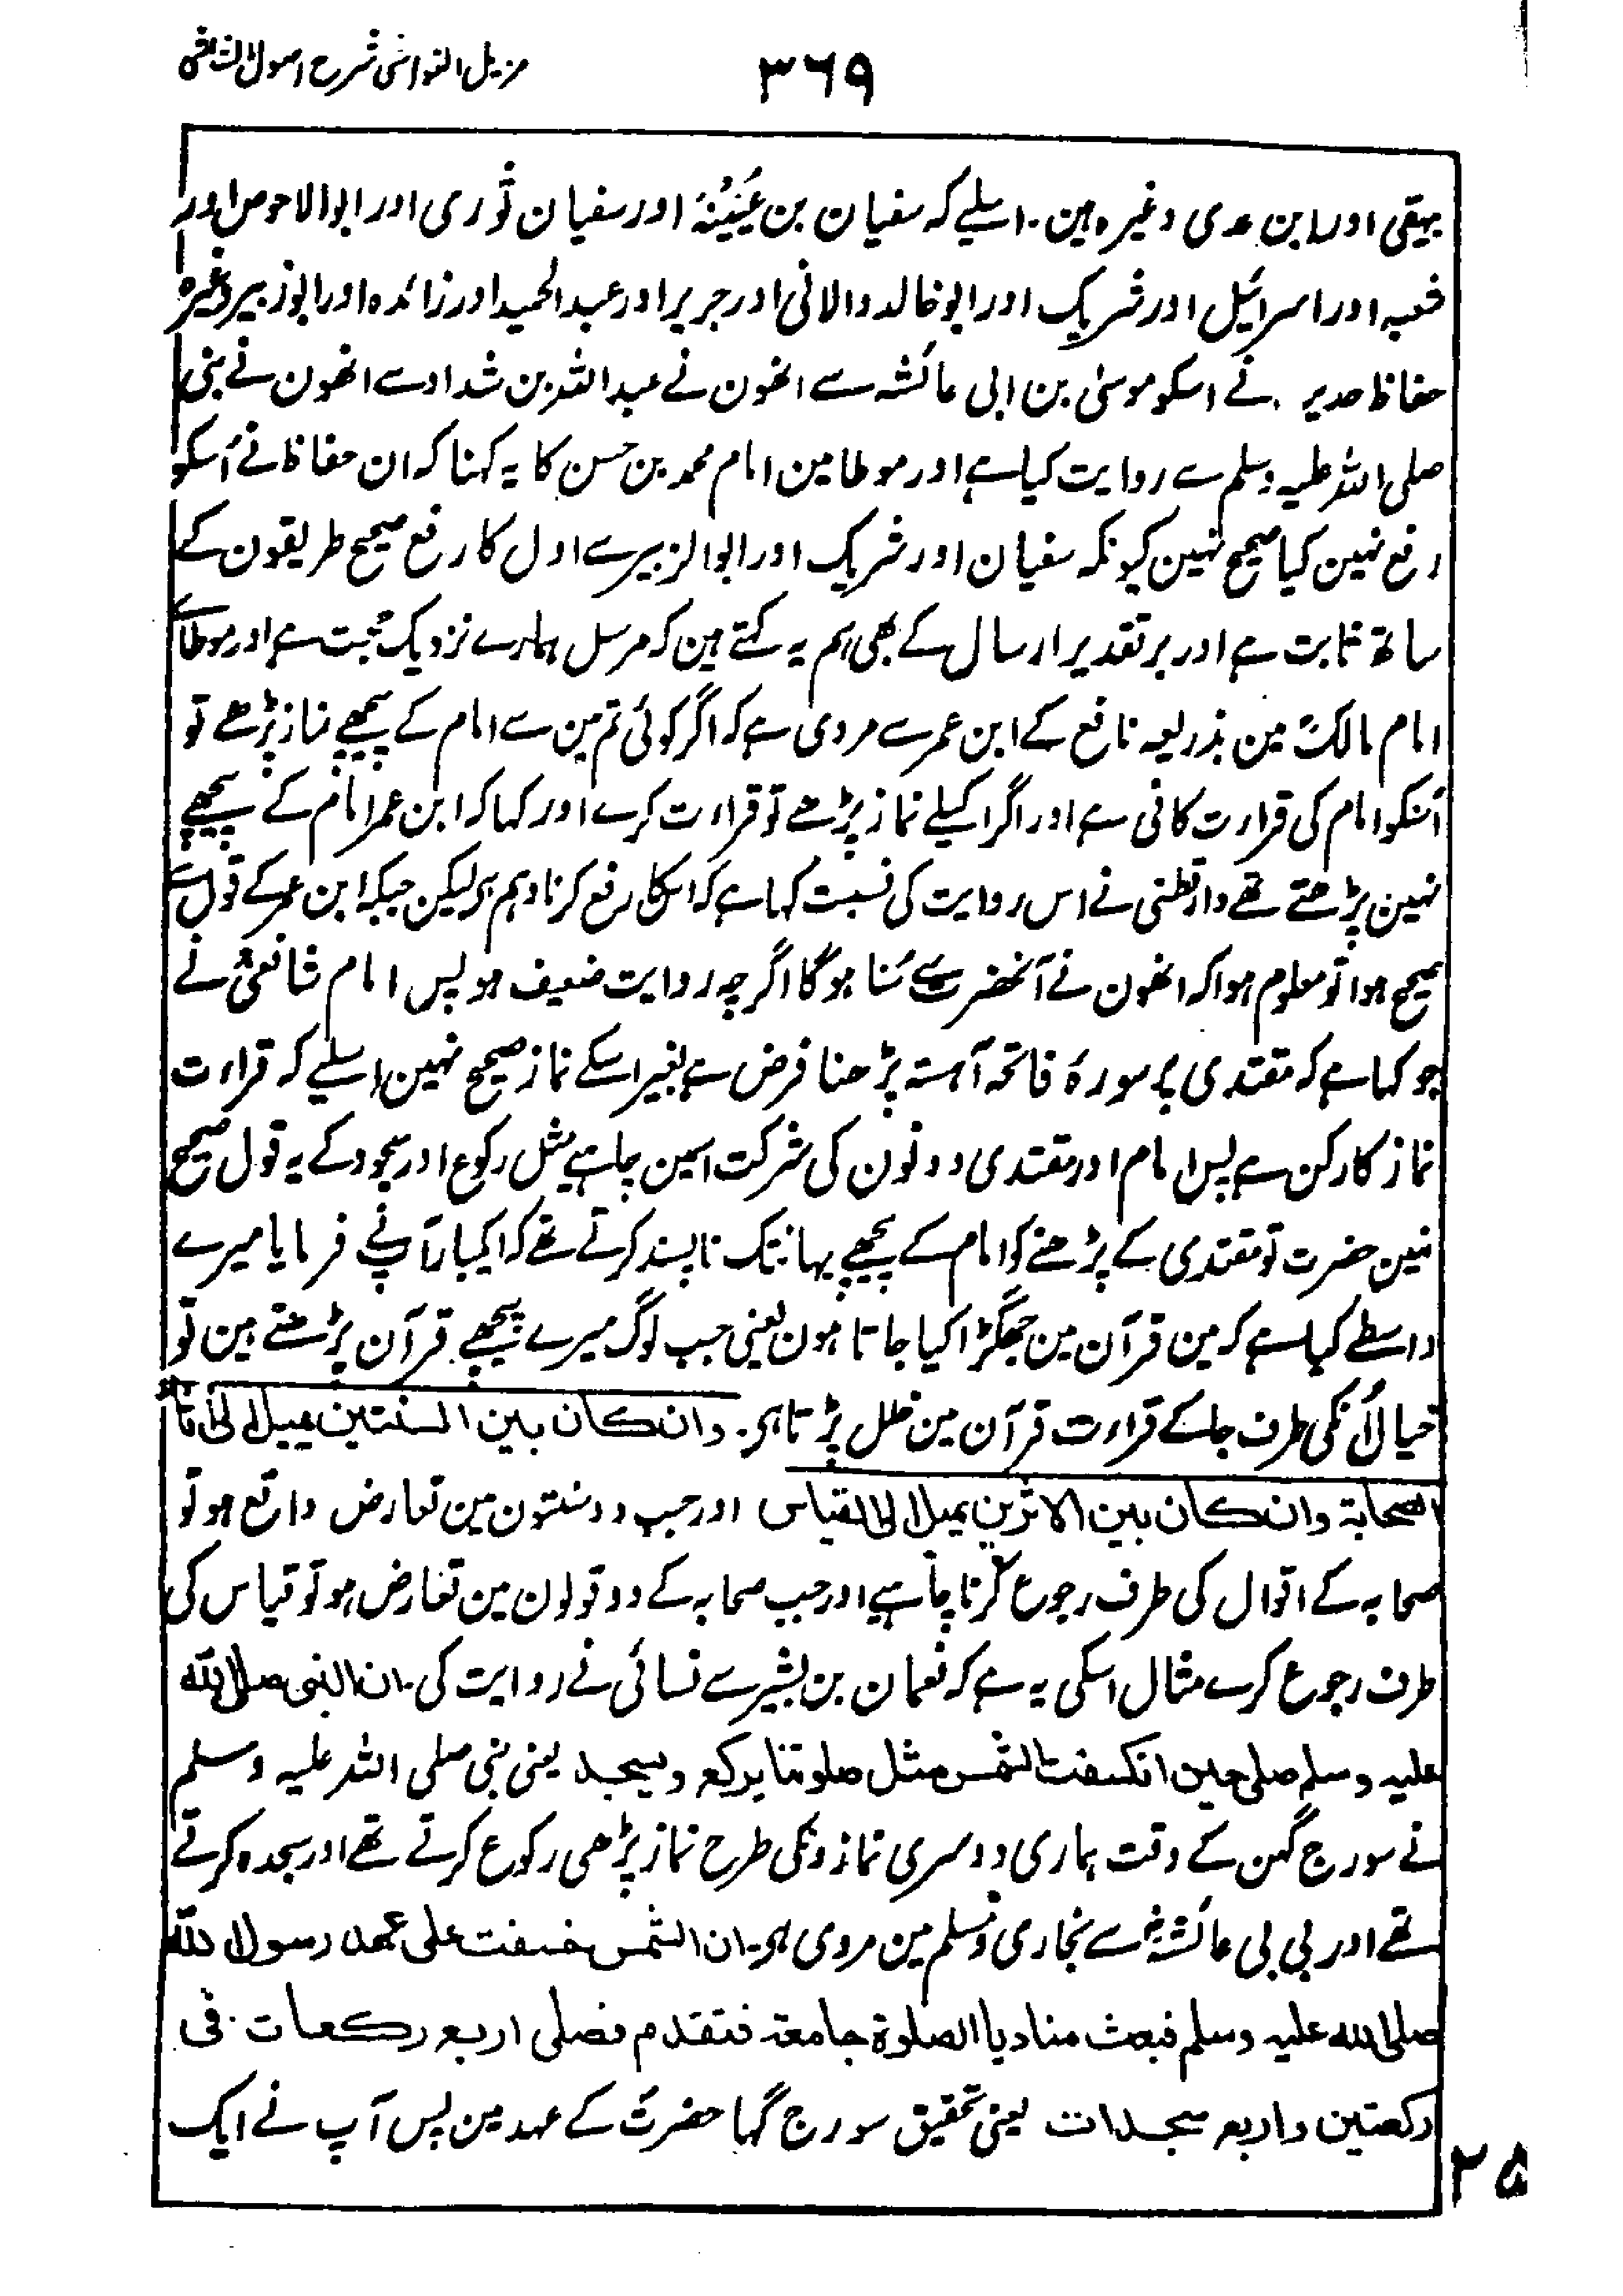 ۳۶۹
مزیل الغواشی شرح اصول الشاشی
بیہقی اور ابن عدی وغیرہ ہین۔ اسلیے کہ سفیان بن عُیَیْنَہ اور سفیان ثوری اور ابو الاحوص اور
شعبہ اور اسرائیل اور شریک اور ابو خالد دالانی اور جریر اور عبد الحمید اور زائدہ اور ابو زبیر وغیرہ
حفاظ حدیث نے اسکو موسیٰ بن ابی عائشہ سے انھون نے عبد اللہ بن شداد سے انھون نے نبی
صلی اللہ علیہ وسلم سے روایت کیا ہے اور موطا مین امام محمد بن حسن کا یہ کہنا کہ ان حفاظ نے اُسکو
رفع نہین کیا صحیح نہین کیونکہ سفیان اور شریک اور ابو الزبیر سے اول کا رفع صحیح طریقون کے
ساتھ ثابت ہے اور بر تقدیر ارسال کے بھی ہم یہ کہتے ہین کہ مرسل ہمارے نزدیک حجت ہے اور موطائے
امام مالکؒ مین بذریعہ نافع کے ابن عمر سے مروی ہے کہ اگر کوئی تم مین سے امام کے پیچھے نماز پڑھے تو
اُسکو امام کی قراءت کافی ہے اور اگر اکیلے نماز پڑھے تو قراءت کرے اور کہا کہ ابن عمر امام کے پیچھے
نہین پڑھتے تھے دارقطنی نے اس روایت کی نسبت کہا ہے کہ اسکا رفع کرنا وہم ہے لیکن جبکہ ابن عمر کے قول سے
صحیح ہوا تو معلوم ہوا کہ انھون نے آنحضرت سے سُنا ہو گا اگرچہ روایت ضعیف ہو پس امام شافعیؒ نے
جو کہا ہے کہ مقتدی پر سورۂ فاتحہ آہستہ پڑھنا فرض ہے بغیر اسکے نماز صحیح نہین اسلیے کہ قراءت
نماز کا رکن ہے پس امام اور مقتدی دونون کی شرکت اسمین چاہیے مثل رکوع اور سجود کے یہ قول صحیح
نہین حضرت تو مقتدی کے پڑھنے کو امام کے پیچھے یہانتک ناپسند کرتے تھے کہ ایکبار آپنے فرمایا میرے
واسطے کیا ہے کہ مین قرآن مین جھگڑا کیا جاتا ہون یعنی جب لوگ میرے پیچھے قرآن پڑھتے ہین تو
خیال اُنکی طرف جا کے قراءت قرآن مین خلل پڑتا ہی۔ وان كان بين السنتين يميل الى اٰثار
الصحابة وان كان بين الاثرين يميل الى القياس اور جب دو سنتون مین تعارض واقع ہو تو
صحابہ کے اقوال کی طرف رجوع کرنا چاہیے اور جب صحابہ کے دو قولون مین تعارض ہو تو قیاس کی
طرف رجوع کرے مثال اسکی یہ ہے کہ نعمان بن بشیر سے نسائی نے روایت کی۔ ان النبى صلى الله
عليہ وسلم صلى حين انكسفت الشمس مثل صلوتنا يركع ويسجد یعنی نبی صلی اللہ علیہ وسلم
نے سورج گہن کے وقت ہماری دوسری نمازونکی طرح نماز پڑھی رکوع کرتے تھے اور سجدہ کرتے
تھے اور بی بی عائشہؓ سے بخاری و مسلم مین مروی ہی۔ ان الشمس خسفت على عهد رسول الله
صلى الله عليہ وسلم فبعث مناديا الصلوة جامعة فتقدم فصلى اربع ركعات فى
ركعتين واربع سجدات یعنی تحقیق سورج گہا حضرت کے عہد مین پس آپ نے ایک
۲۵